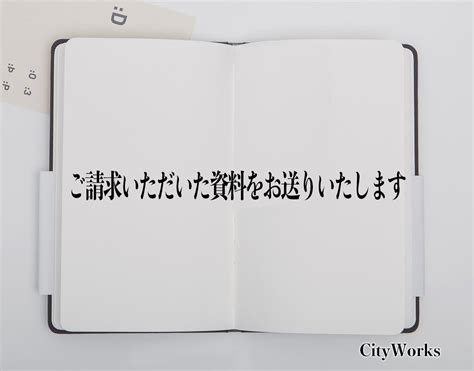 :D
:O :3
:P :P
ご請求いただいた資料をお送りいたします
CityWorks